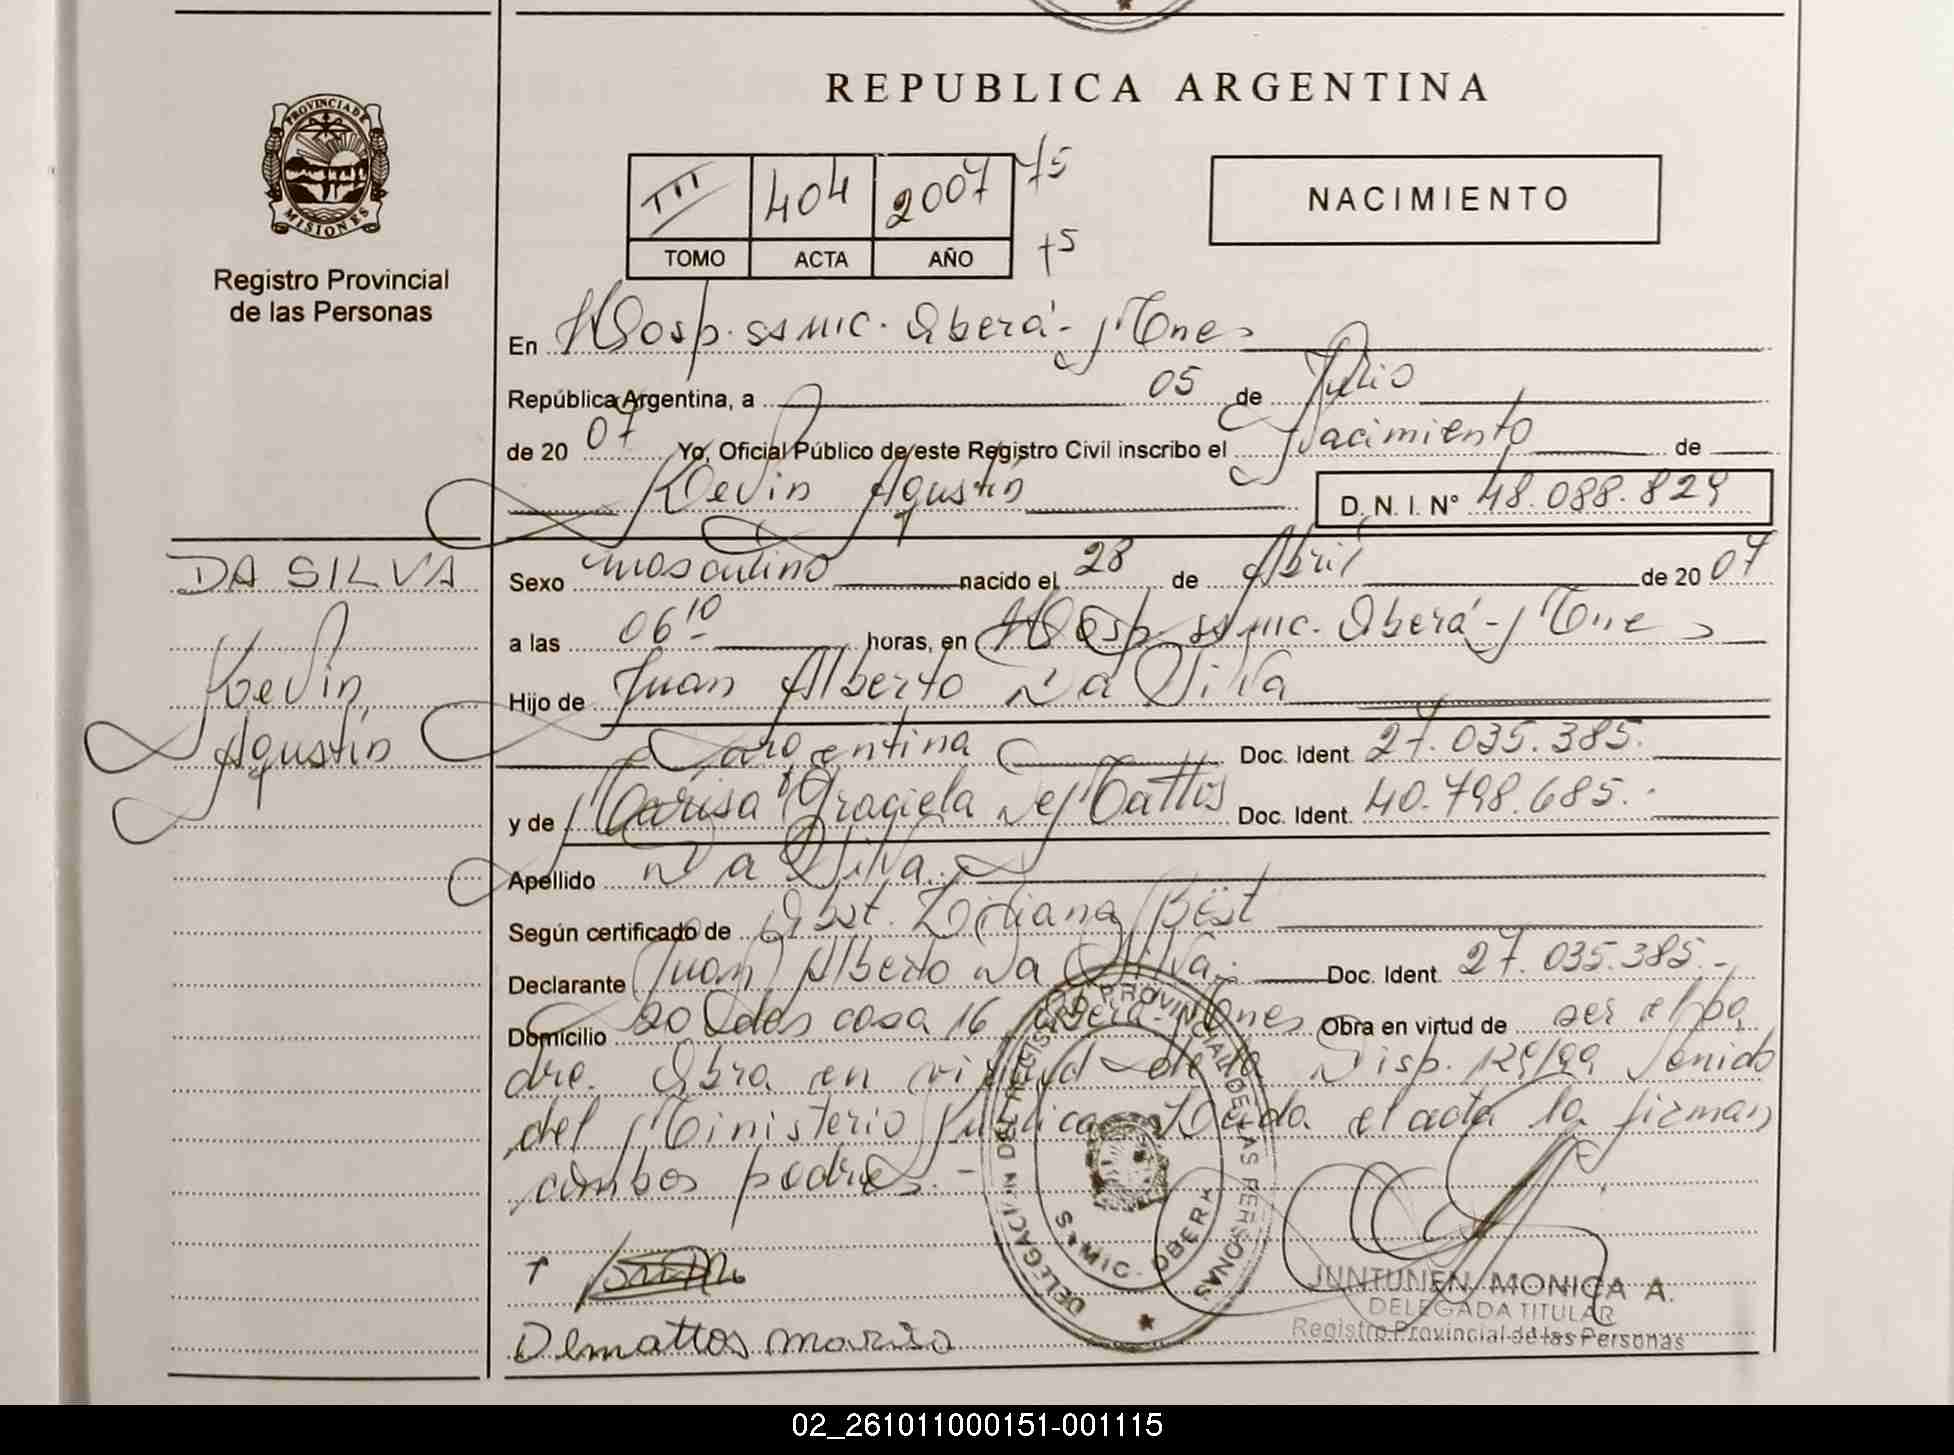 REPUBLICA ARGENTINA
PROVINCIA DE
MISIONES
Registro Provincial
de las Personas
III 404 2007 75
TOMO ACTA AÑO +5
NACIMIENTO
En Hosp. SAMIC. Oberá - Mnes
República Argentina, a 05 de Julio
de 20 07 Yo, Oficial Público de este Registro Civil inscribo el Nacimiento de
Kevin Agustín D. N. I. N° 48.088.829
DA SILVA
Kevin
Agustín
Sexo masculino nacido el 28 de Abril de 20 07
a las 06 10 horas, en Hosp. SAMIC. Oberá - Mnes
Hijo de Juan Alberto Da Silva
Argentina Doc. Ident. 27.035.385.
y de Marisa Graciela De Mattos Doc. Ident. 40.798.685.
Apellido Da Silva
Según certificado de Obst. Liliana Best
Declarante Juan Alberto Da Silva. Doc. Ident. 27.035.385.-
Domicilio 20 Vdas casa 16 Oberá - Mnes Obra en virtud de ser el pa
dre. Obra en virtud de la Disp. 129/99 Venido
del Ministerio Leída el acta la firman
ambos padres. -
DELEGACION DEL REGISTRO PROVINCIAL DE LAS PERSONAS
SAMIC - OBERA
Demattos marisa
JUNTUNEN, MONICA A.
DELEGADA TITULAR
Registro Provincial de las Personas
02_261011000151-001115